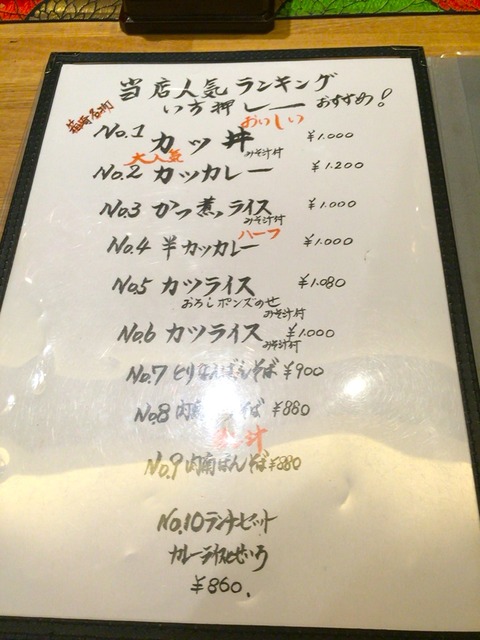 当店人気ランキング
い方押しー おすすめ!
名物 おいしい
No.1 カツ丼 ¥1.000
大人気 みそ汁付
No.2 カツカレー ¥1.200
No.3 かつ煮ライス ¥1.000
みそ汁付
ハーフ
No.4 半カツカレー ¥1.000
No.5 カツライス ¥1.080
おろしポンズのせ
みそ汁付
No.6 カツライス ¥1.000
みそ汁付
No.7 とりなんばんそば ¥900
No.8 肉 そば ¥880
汁
No.9 肉南ばんそば ¥880
No.10 ランチセット
カレーライスとせいろ
¥860.